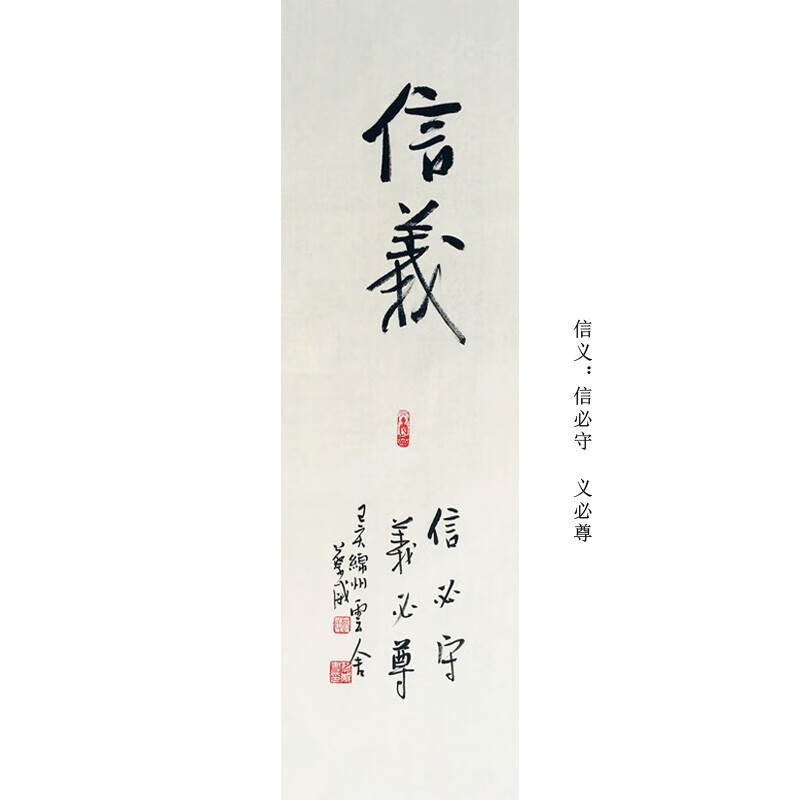 信義
信必守
義必尊
綿州雲舍
信义：信必守 义必尊